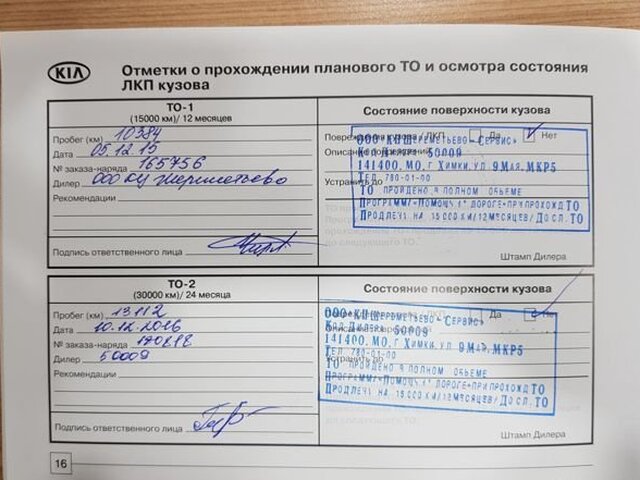 KIA
Отметки о прохождении планового ТО и осмотра состояния
ЛКП кузова
ТО-1
(15000 км)/ 12 месяцев
Состояние поверхности кузова
Пробег (км) 10384
Повреждения кузова / ЛКП Да Нет
Дата 05.12.15
№ заказа-наряда 165756
Дилер ООО КЦ Шереметьево
Рекомендации
Устранить до
ООО «КЦ Шереметьево-Сервис»
Код Дилера 50009
141400. МО, г Химки, ул 9 Мая, МКР5
Тел. 780-01-00
ТО пройдено в полном объеме
Программы «Помощь в дороге» при прохожд ТО
Продлены на 15 000 км/12 месяцев/До сл. ТО
Подпись ответственного лица
Штамп Дилера
ТО-2
(30000 км)/ 24 месяца
Состояние поверхности кузова
Пробег (км) 13112
Да
Дата 10.12.2016
№ заказа-наряда
Дилер 50009
Рекомендации
Устранить до
ООО «КЦ Шереметьево-Сервис»
Код Дилера 50009
141400. МО, г Химки, ул 9 Мая, МКР5
Тел. 780-01-00
ТО пройдено в полном объеме
Программы «Помощь в дороге» при прохожд ТО
Продлены на 15 000 км/12 месяцев/До сл. ТО
Подпись ответственного лица
Штамп Дилера
16